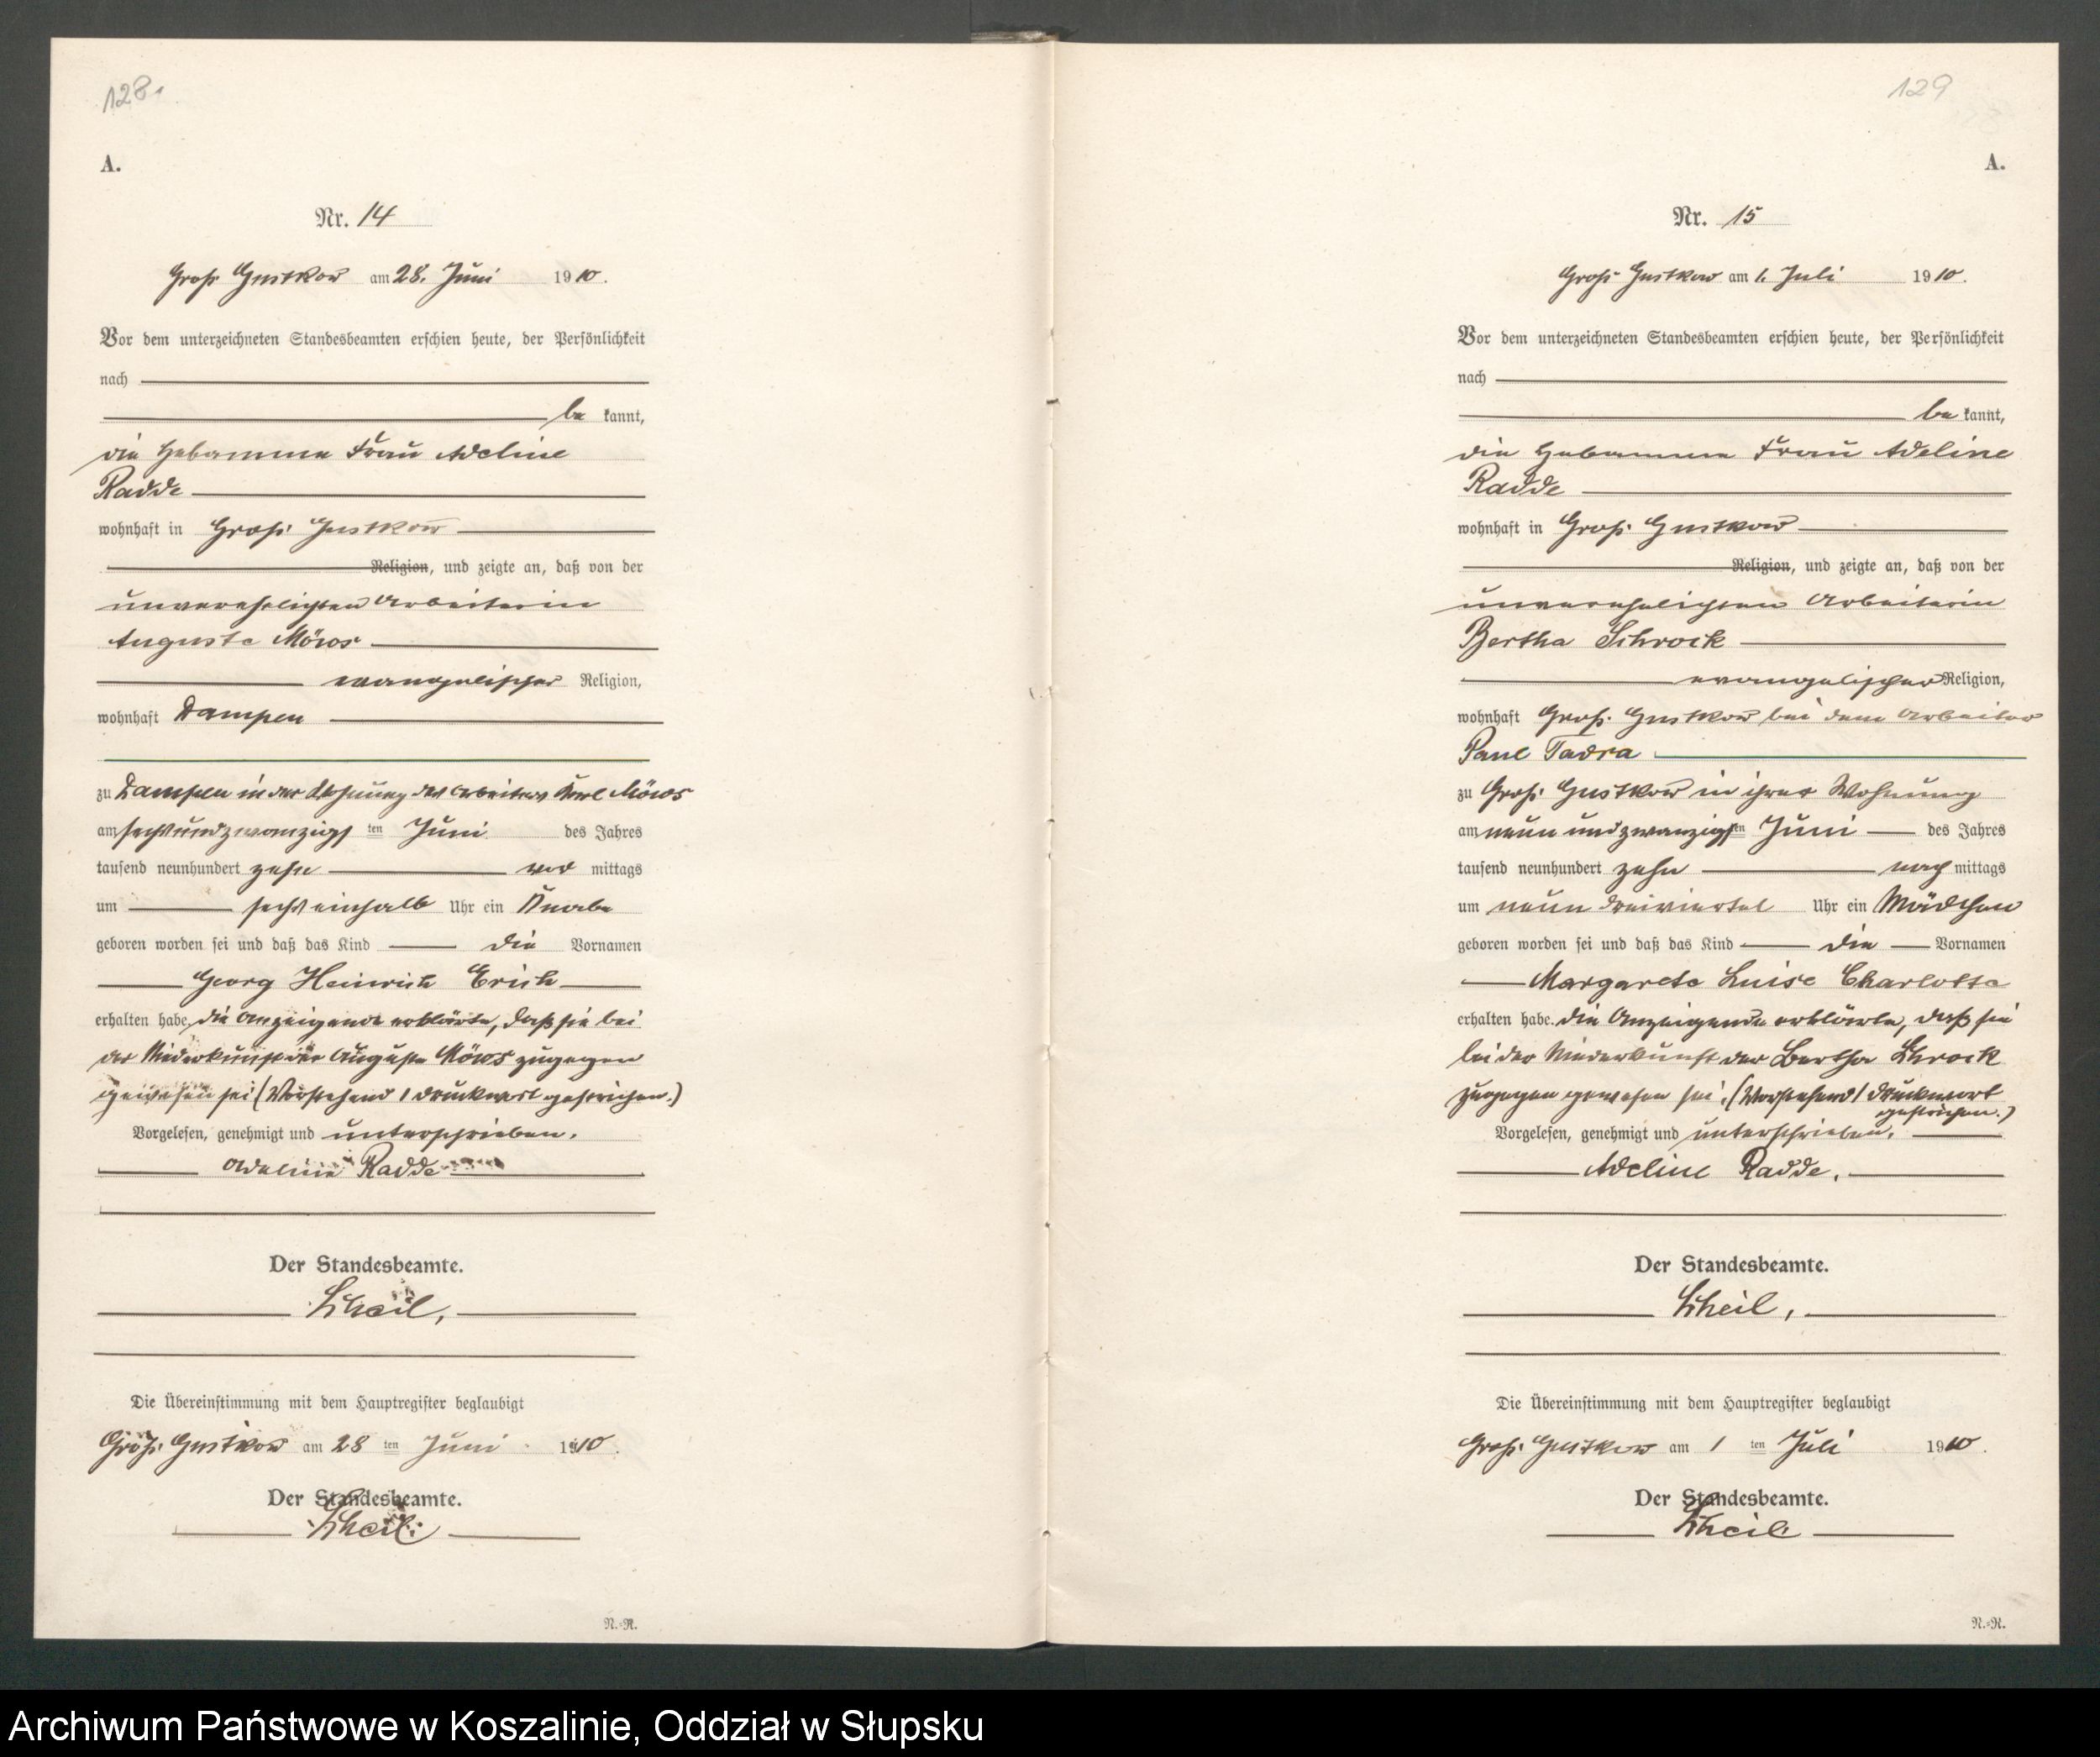 128.
A.
Nr. 14
Groß Gustkow am 28. Juni 1910.
Vor dem unterzeichneten Standesbeamten erschien heute, der Persönlichkeit
nach
be kannt,
die Hebamme Frau Adeline
Radde
wohnhaft in Groß Gustkow
Religion, und zeigte an, daß von der
unverehelichten Arbeiterin
Auguste Möws
evangelischer Religion,
wohnhaft Dampen
zu Dampen in der Wohnung des Arbeiters Karl Möws
am sechsundzwanzigsten Juni des Jahres
tausend neunhundert zehn vor mittags
um sechseinhalb Uhr ein Knabe
geboren worden sei und daß das Kind die Vornamen
Georg Heinrich Erich
erhalten habe, die Anzeigende erklärte, daß sie bei
der Niederkunft der Auguste Möws zugegen
gewesen sei (Vorstehend 1 Druckwort gestrichen.)
Vorgelesen, genehmigt und unterschrieben.
Adeline Radde
Der Standesbeamte.
Scheil,
Die Übereinstimmung mit dem Hauptregister beglaubigt
Groß Gustkow am 28 ten Juni 1910.
Der Standesbeamte.
Scheil.
N.-R.
129
A.
Nr. 15
Groß Gustkow am 1. Juli 1910.
Vor dem unterzeichneten Standesbeamten erschien heute, der Persönlichkeit
nach
be kannt,
die Hebamme Frau Adeline
Radde
wohnhaft in Groß Gustkow
Religion, und zeigte an, daß von der
unverehelichten Arbeiterin
Bertha Schrock
evangelischer Religion,
wohnhaft Groß Gustkow bei dem Arbeiter
Paul Tadra
zu Groß Gustkow in ihrer Wohnung
am neunundzwanzigsten Juni des Jahres
tausend neunhundert zehn nach mittags
um neun dreiviertel Uhr ein Mädchen
geboren worden sei und daß das Kind die Vornamen
Margarete Luise Charlotte
erhalten habe. die Anzeigende erklärte, daß sie
bei der Niederkunft der Bertha Schrock
zugegen gewesen sei. (Vorstehend 1 Druckwort
gestrichen.)
Vorgelesen, genehmigt und unterschrieben.
Adeline Radde.
Der Standesbeamte.
Scheil,
Die Übereinstimmung mit dem Hauptregister beglaubigt
Groß Gustkow am 1 ten Juli 1910.
Der Standesbeamte.
Scheil.
N.-R.
Archiwum Państwowe w Koszalinie, Oddział w Słupsku